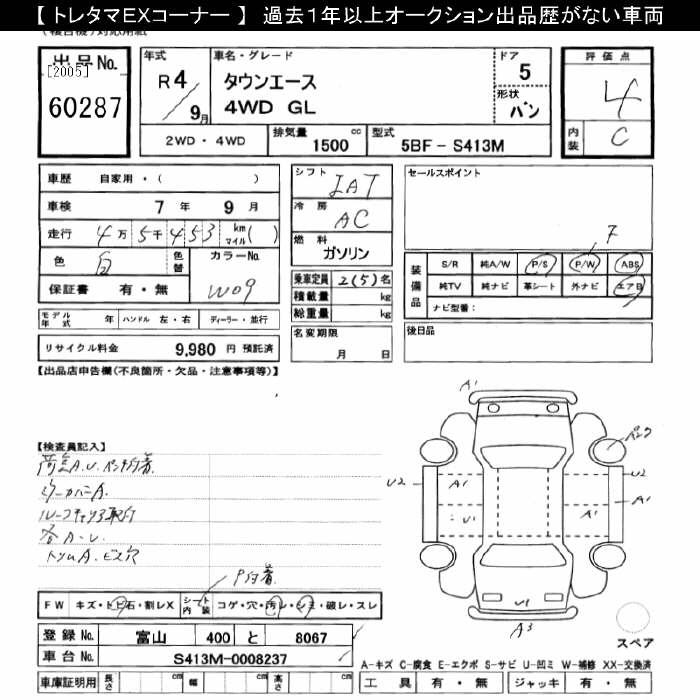 【 トレタマEXコーナー 】 過去1年以上オークション出品歴がない車両
出品No.
[2005]
60287
年式
R4/9月
車名・グレード
タウンエース
4WD GL
ドア
5
形状
バン
評価点
4
内装
C
2WD・4WD
排気量
1500
cc
型式
5BF-S413M
車歴 自家用・( )
車検 7年 9月
走行 4万5千453 km マイル( )
色 白 色替
カラーNo.
W09
保証書 有・無
モデル年式 年 ハンドル 左・右 ディーラー・並行
リサイクル料金 9,980 円 預託済
シフト
IAT
冷房
AC
燃料
ガソリン
乗車定員 2(5)名
積載量 kg
総重量 kg
名変期限
月 日
セールスポイント
F
装備品
S/R 純A/W P/S P/W ABS
純TV 純ナビ 革シート 外ナビ エアB
ナビ型番:
後日品
【出品店申告欄(不良箇所・欠品・注意事項等)】
【検査員記入】
ミラーカバーA.
各A-U
トリムA.ビス穴
P付着
FW キズ・トビ石・割レX
シート内装 コゲ・穴・汚レ・シミ・破レ・スレ
登録No. 富山 400 と 8067
車台No. S413M-0008237
車庫証明用 長さ cm 幅 cm 高さ cm
A1
パンク
U2
A1
U1
A1
U2
A1
U1
A3
スペア
A-キズ C-腐食 E-エクボ S-サビ U-凹ミ W-補修 XX-交換済
工具 有・無 ジャッキ 有・無